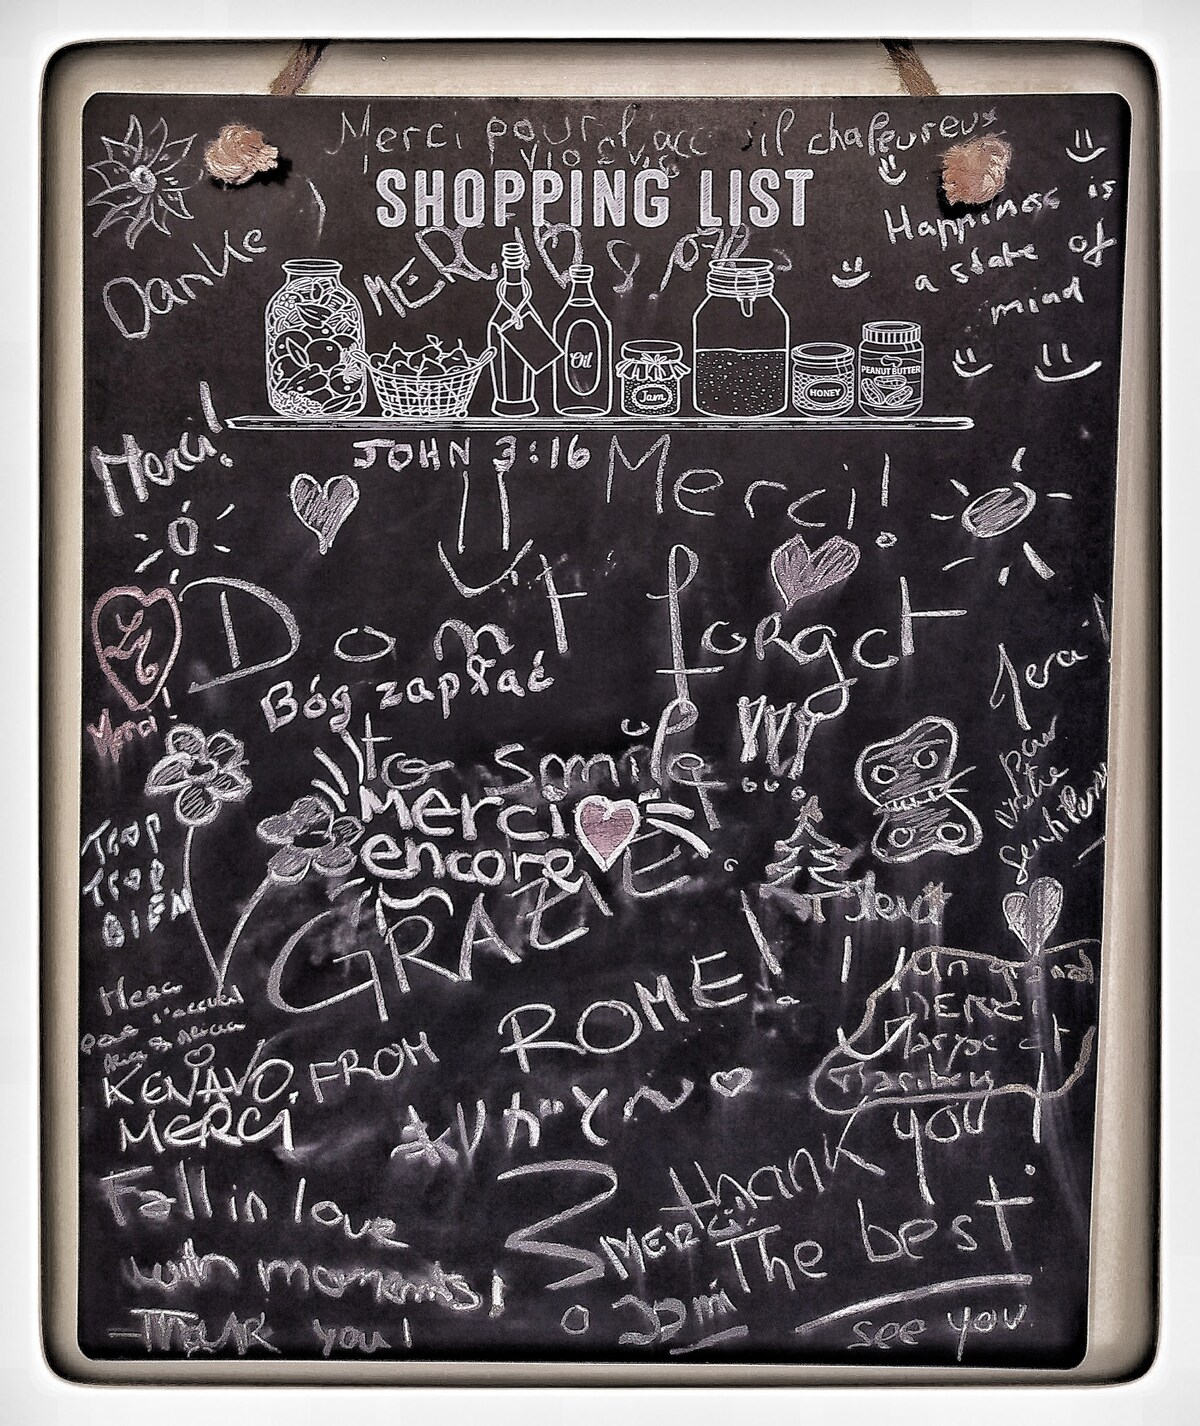 Merci pour l'accueil chaleureux
SHOPPING LIST
Happiness is
a state of
mind
Danke
MERCI
Oil
Jam
HONEY
PEANUT BUTTER
Merci!
JOHN 3:16
Merci!
Dont forget
Bóg zapłać
Merci!
Merci!
to smile !!!
Merci
encore
TROP
TROP
BIEN
GRAZIE
FROM ROME!
Merci
pour l'accueil
KENAVO
MERCI
Un grand
MERCI
thank you
Fall in love
with moments!
MERCI
The best
THANK you!
see you